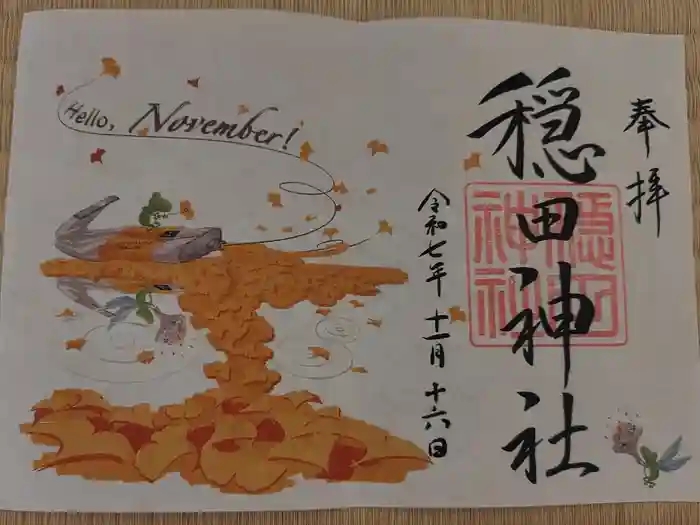 奉拝
穏田神社
穏田神社
令和七年 十一月 十六日
Hello, November!